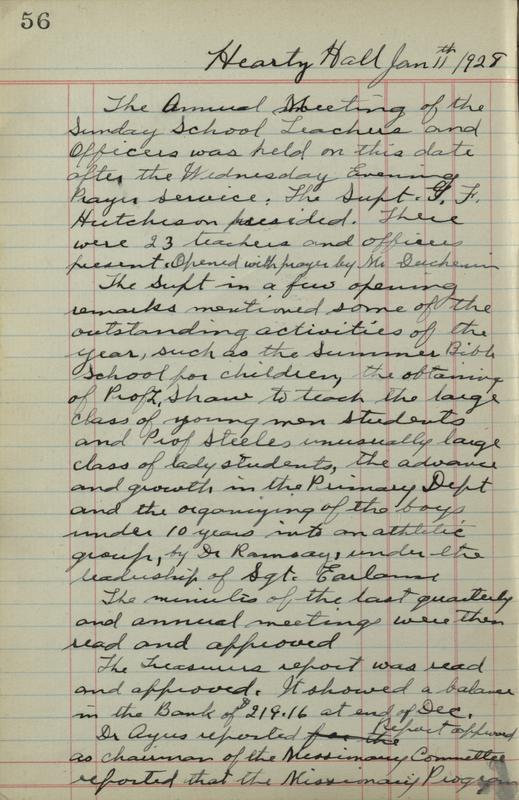 56
Hearty Hall Jan 11th 1928
The Annual Meeting of the
Sunday School Teachers and
Officers was held on this date
after the Wednesday Evening
Prayer Service. The Supt. G. F.
Hutcheson presided. There
were 23 teachers and officers
present. Opened with prayer by Mr
The Supt in a few opening
remarks mentioned some of the
outstanding activities of the
year, such as the Summer Bible
School for children, the obtaining
of Prof. Shaw to teach the large
class of young men students
and Prof Steeles unusually large
class of lady students, the advance
and growth in the Primary Dept
and the organizing of the boys
under 10 years into an athletic
group, by Dr Ramsay, under the
leadership of Sgt.
The minutes of the last quarterly
and annual meetings were then
read and approved
The Treasurers report was read
and approved. It showed a balance
in the Bank of $219.16 at end of Dec.
Report approved
Dr Ayers reported for the
as chairman of the Missionary Committee
reported that the Missionary Program